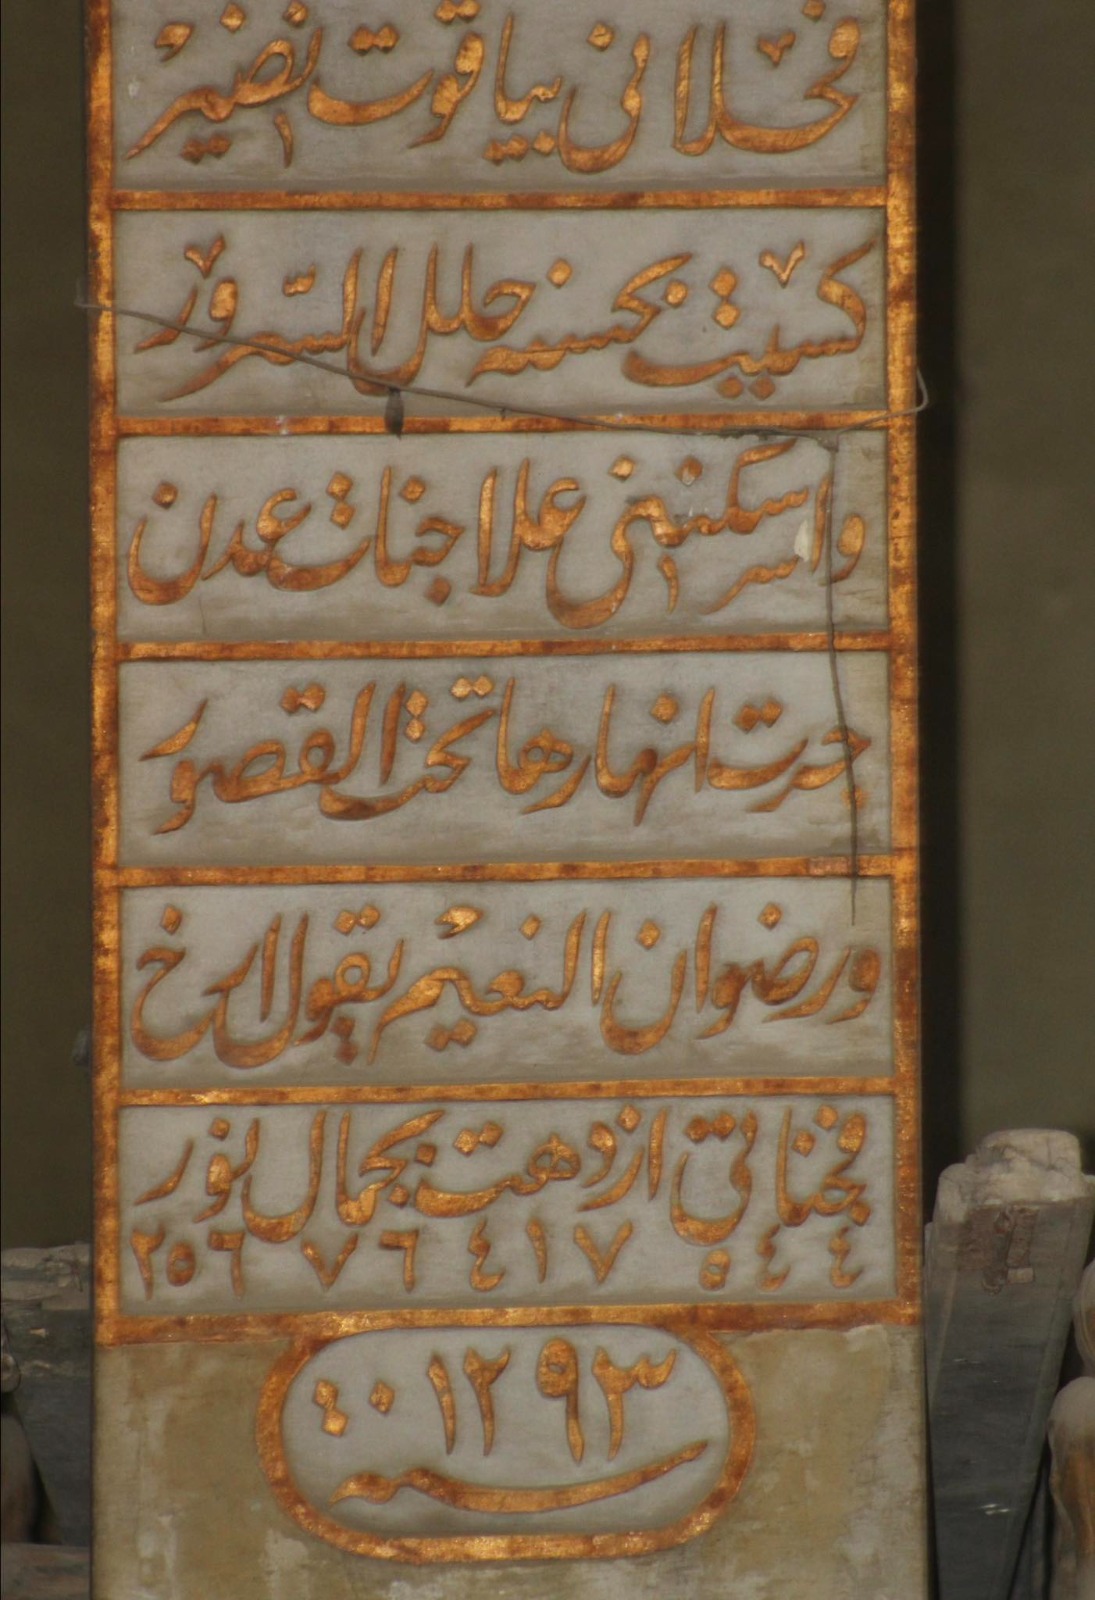 فحلاني بياقوت نضير
كسيت بحسنه حلل السرور
واسكنني علا جنات عدن
جرت انهارها تحت القصور
ورضوان النعيم يقول ارخ
فجناتي ازدهت بجمال نور
٥٤٤ ٤١٧ ٧٦ ٢٥٦
سنة ١٢٩٣